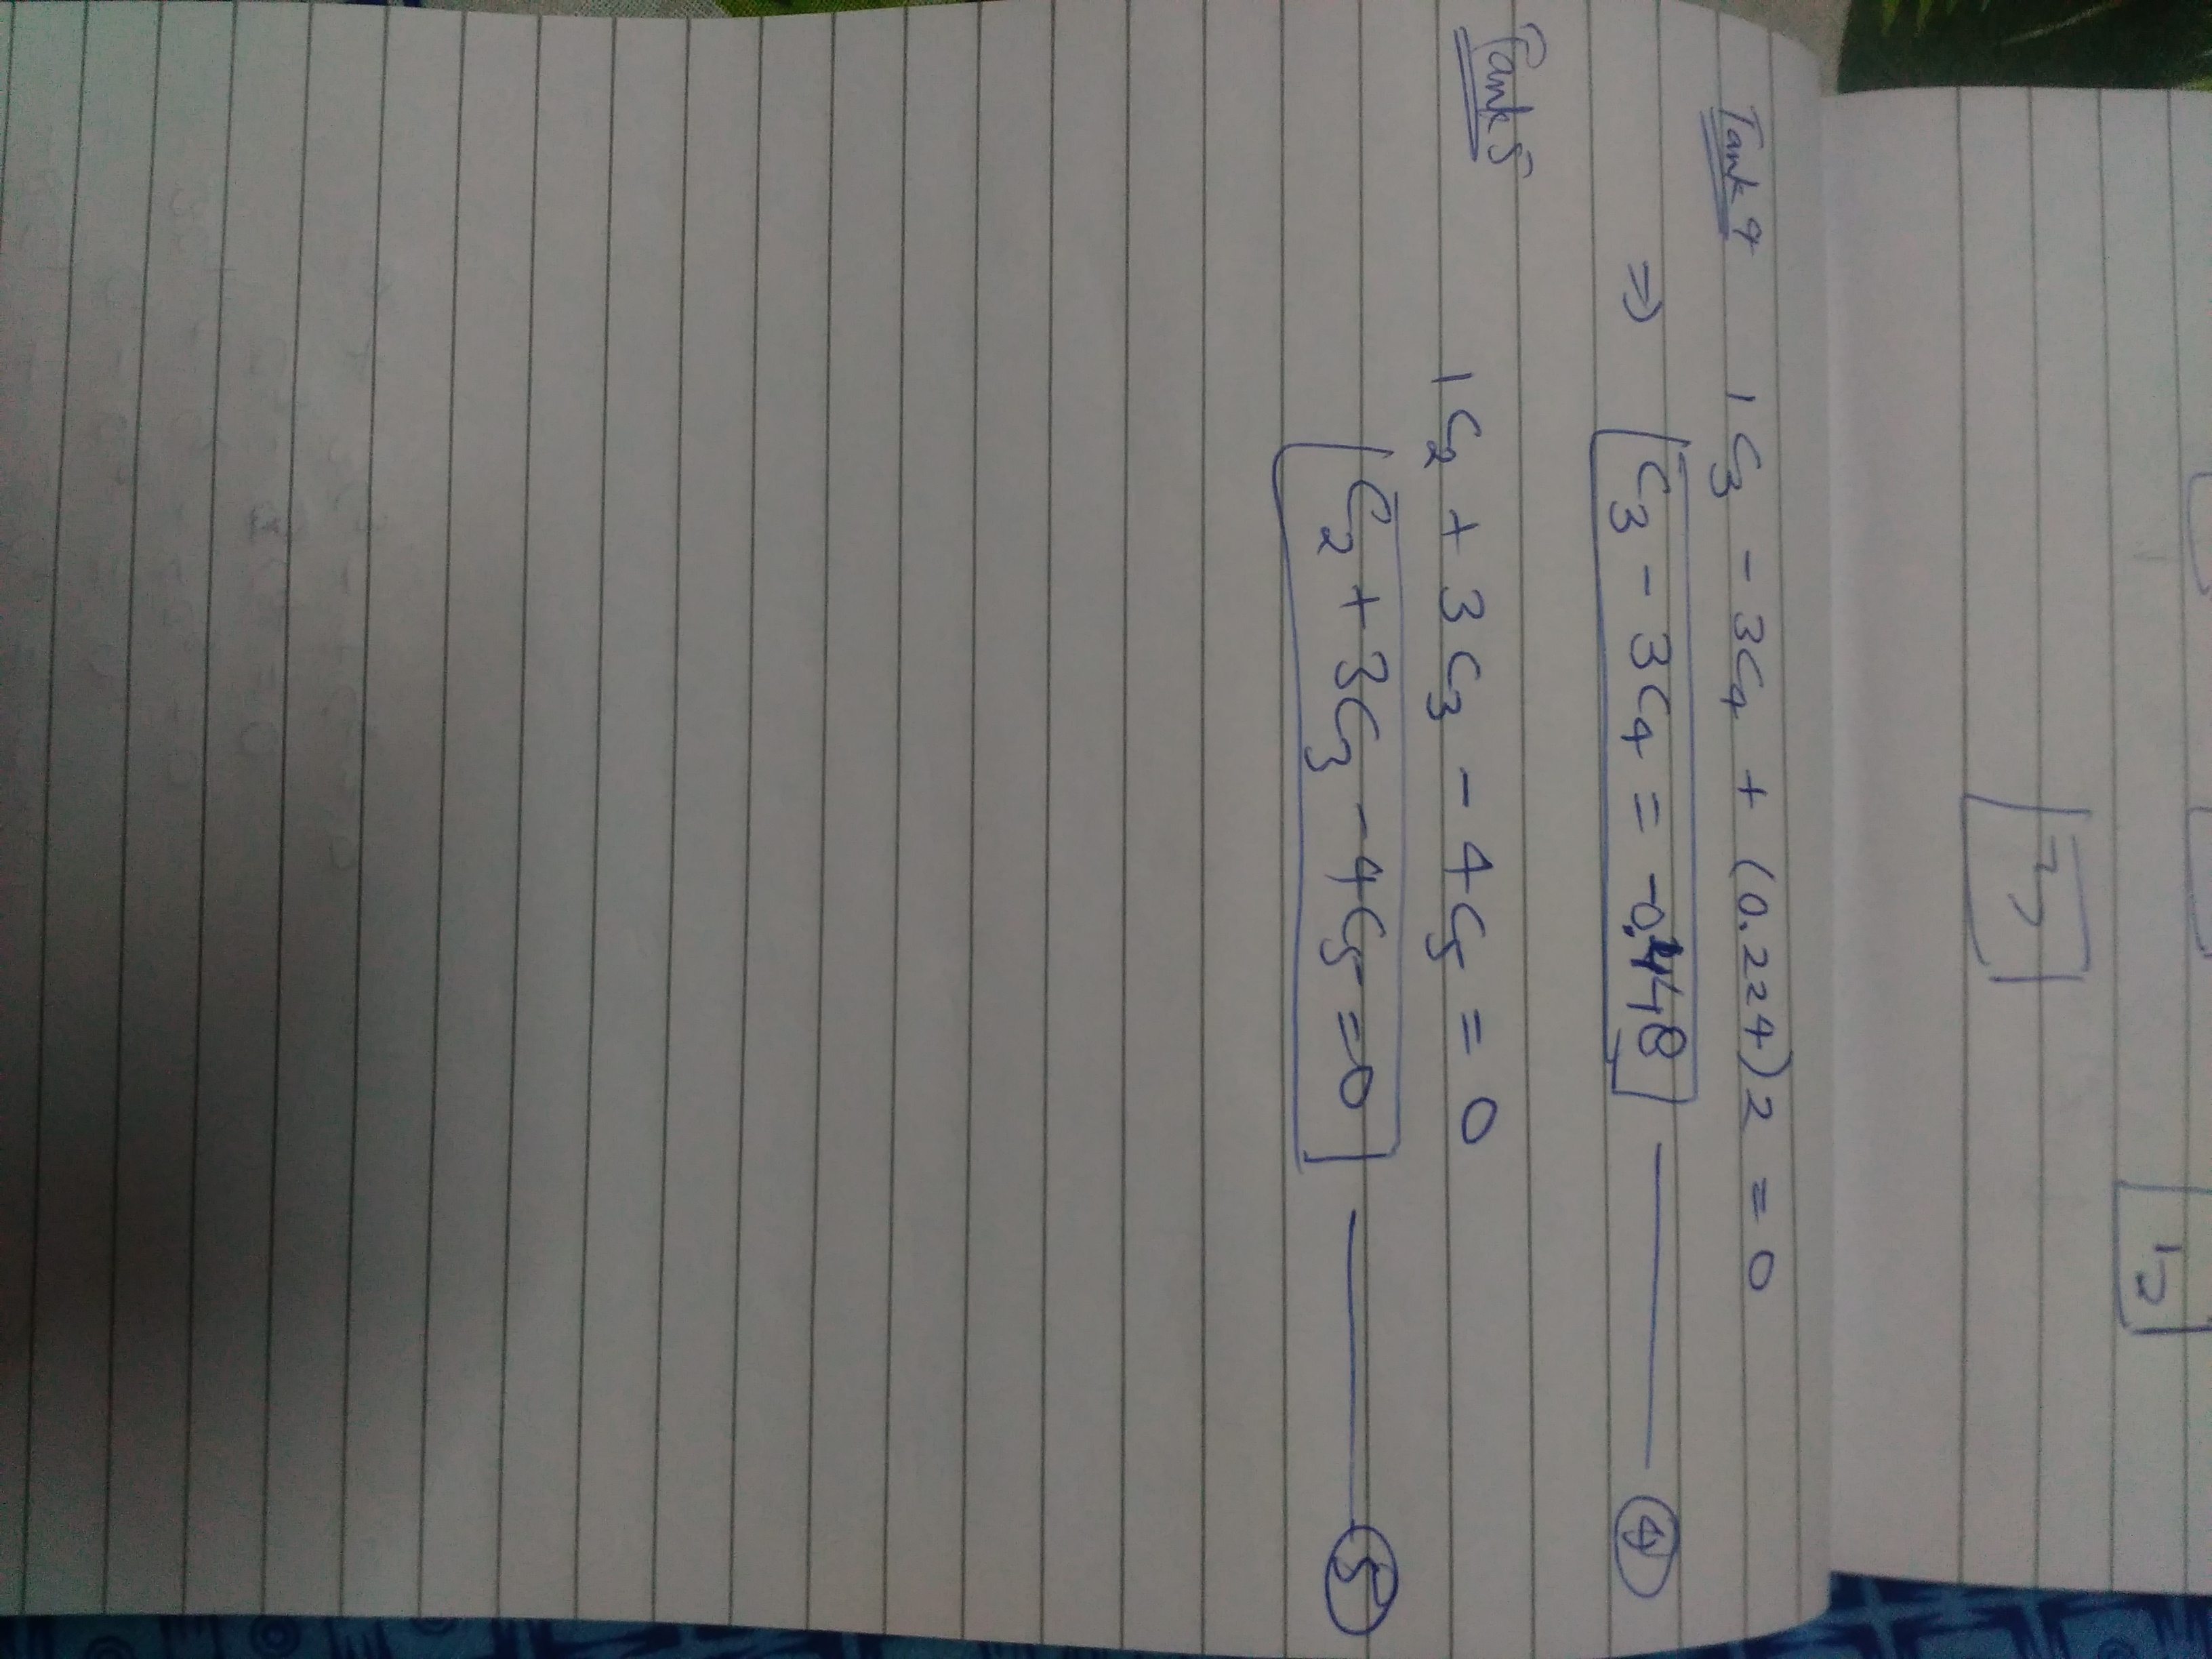 Tank 4 1C3 - 3C4 + (0.224)2 = 0
⇒ C3 - 3C4 = -0.448 4
Tank 5
1C2 + 3C3 - 4C5 = 0
C2 + 3C3 - 4C5 = 0 5